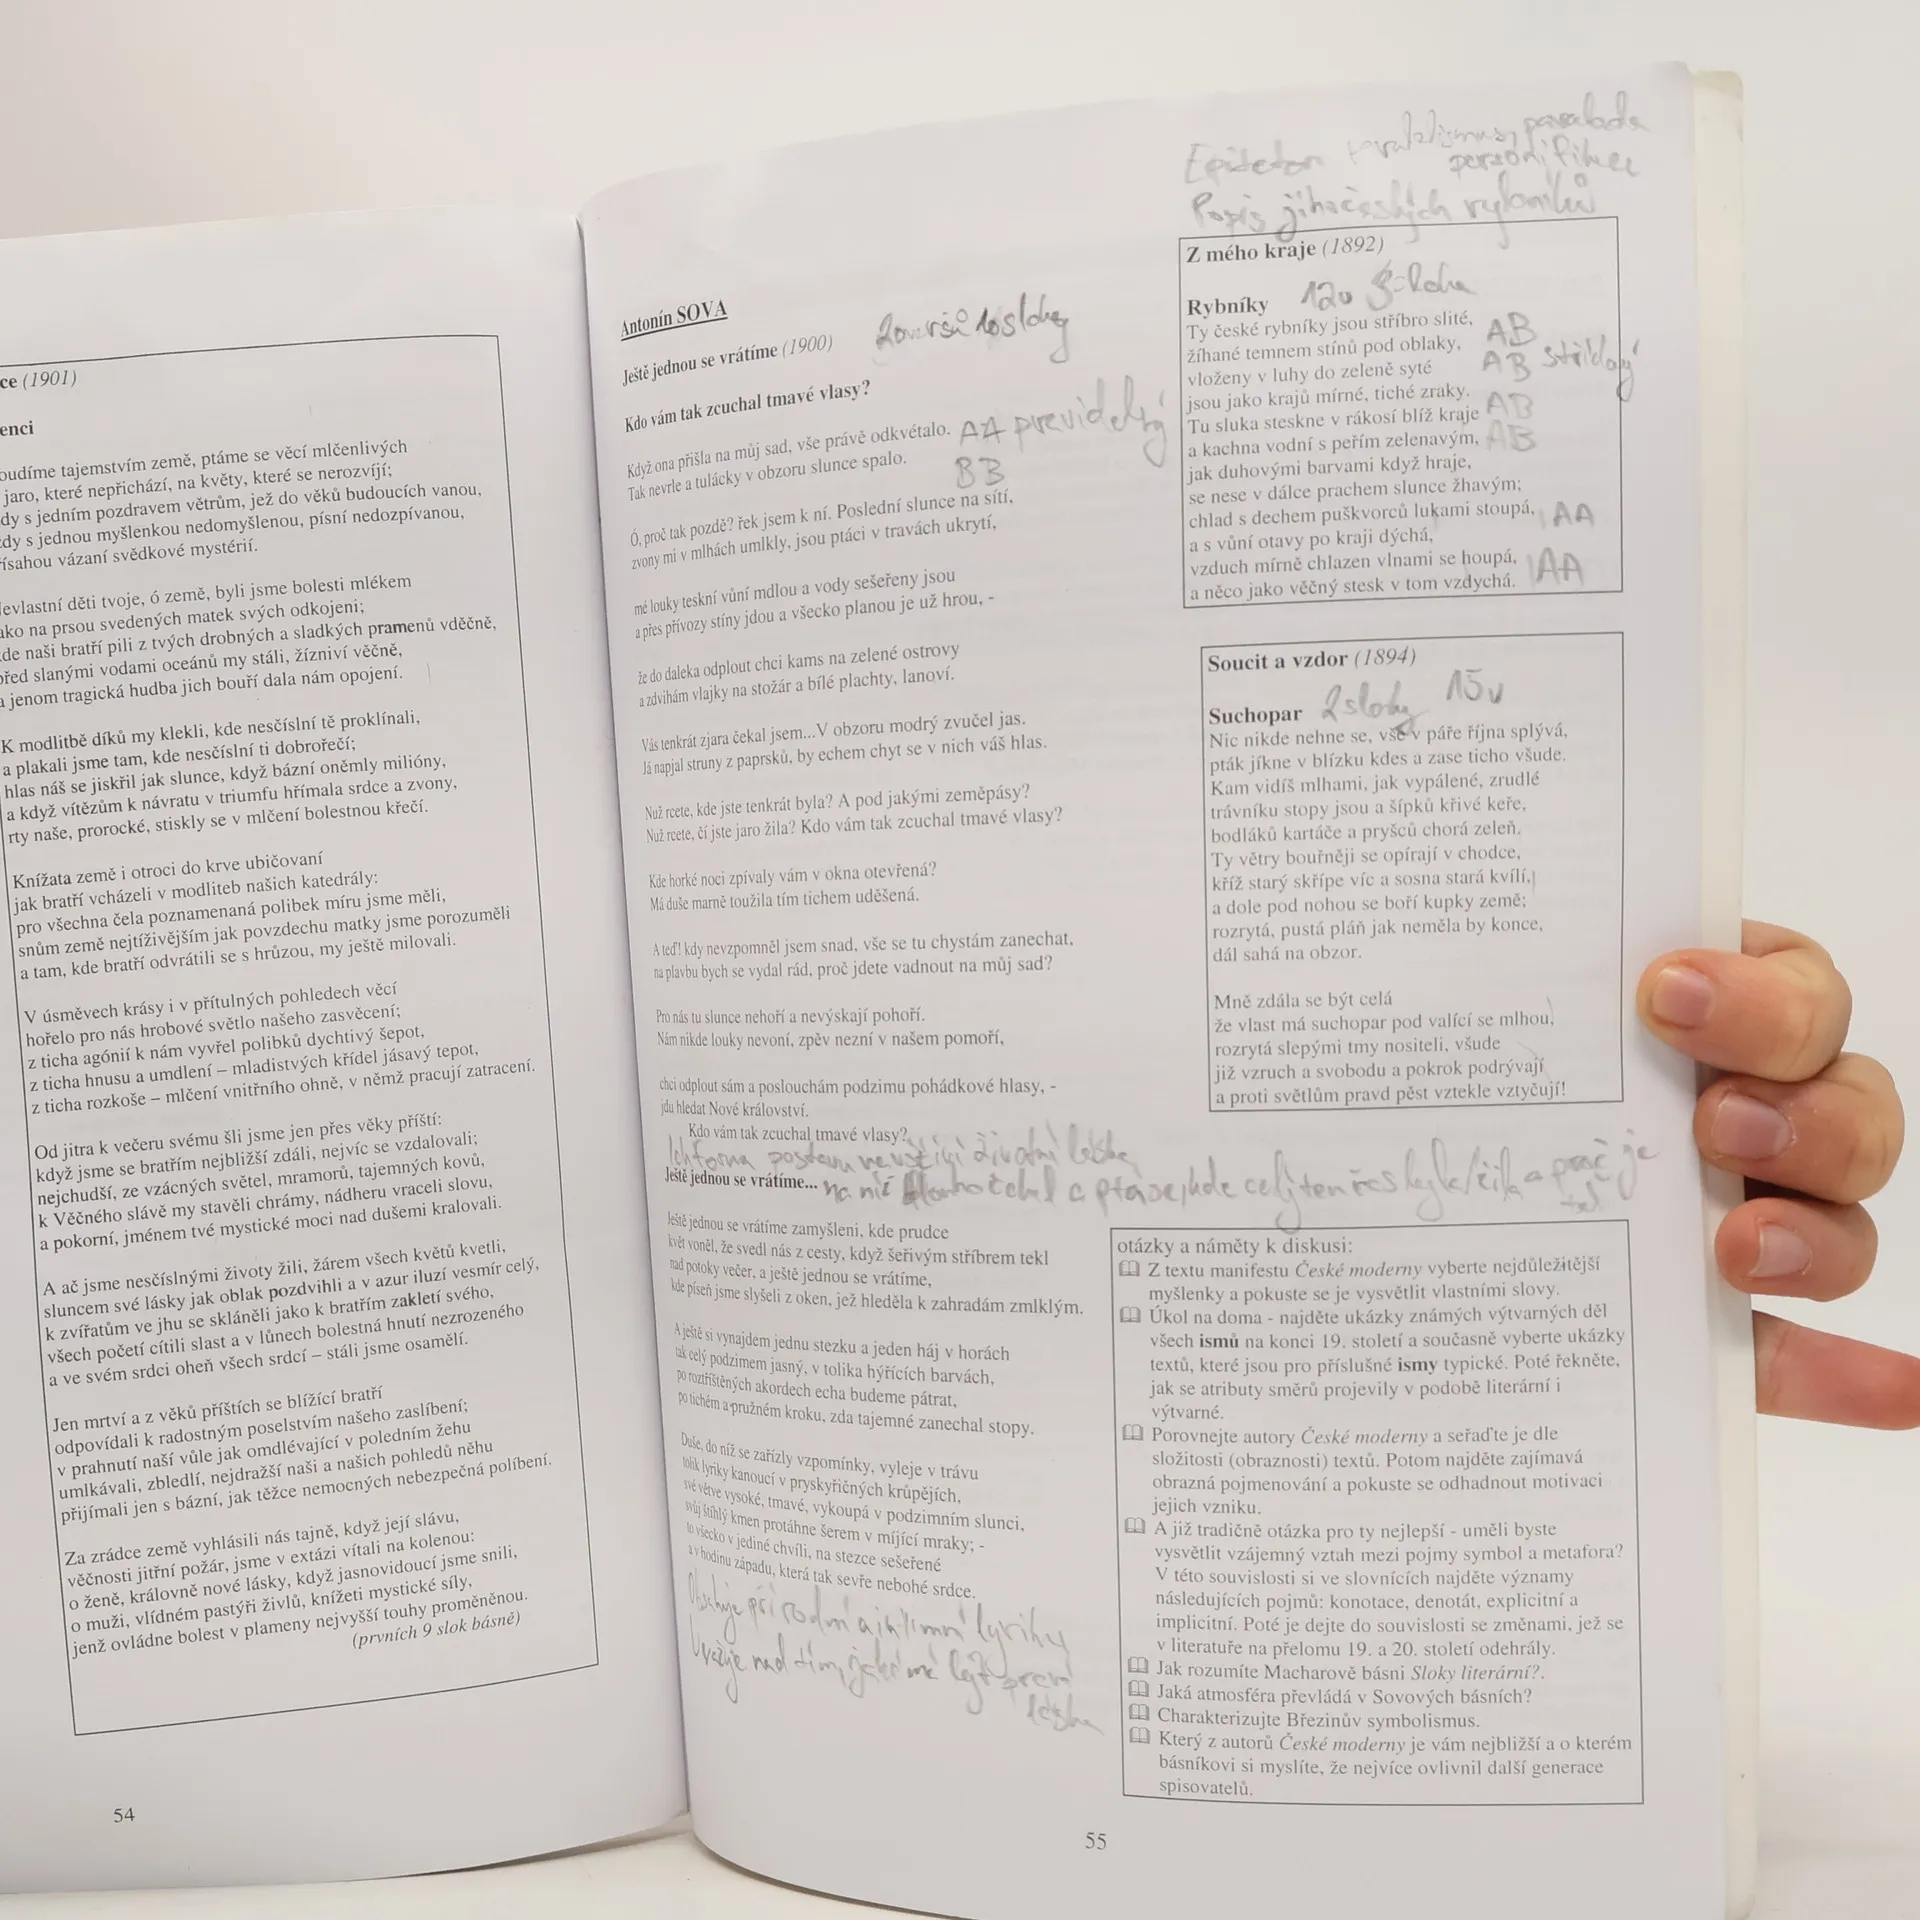 ce (1901)
enci
oudíme tajemstvím země, ptáme se věcí mlčenlivých
jaro, které nepřichází, na květy, které se nerozvíjí;
dy s jedním pozdravem větrům, jež do věků budoucích vanou,
dy s jednou myšlenkou nedomyšlenou, písní nedozpívanou,
ísahou vázaní svědkové mystérií.
evlastní děti tvoje, ó země, byli jsme bolesti mlékem
ako na prsou svedených matek svých odkojeni;
de naši bratří pili z tvých drobných a sladkých pramenů vděčně,
před slanými vodami oceánů my stáli, žízniví věčně,
a jenom tragická hudba jich bouří dala nám opojení.
K modlitbě díků my klekli, kde nesčíslní tě proklínali,
a plakali jsme tam, kde nesčíslní ti dobrořečí;
hlas náš se jiskřil jak slunce, když bázní oněmly milióny,
a když vítězům k návratu v triumfu hřímala srdce a zvony,
rty naše, prorocké, stiskly se v mlčení bolestnou křečí.
Knížata země i otroci do krve ubičovaní
jak bratří vcházeli v modliteb našich katedrály:
pro všechna čela poznamenaná polibek míru jsme měli,
snům země nejtíživějším jak povzdechu matky jsme porozuměli
a tam, kde bratří odvrátili se s hrůzou, my ještě milovali.
V úsměvech krásy i v přítulných pohledech věcí
hořelo pro nás hrobové světlo našeho zasvěcení;
z ticha agónií k nám vyvřel polibků dychtivý šepot,
z ticha hnusu a umdlení – mladistvých křídel jásavý tepot,
z ticha rozkoše – mlčení vnitřního ohně, v němž pracují zatracení.
Od jitra k večeru svému šli jsme jen přes věky příští:
když jsme se bratřím nejbližší zdáli, nejvíc se vzdalovali;
nejchudší, ze vzácných světel, mramorů, tajemných kovů,
k Věčného slávě my stavěli chrámy, nádheru vraceli slovu,
a pokorní, jménem tvé mystické moci nad dušemi kralovali.
A ač jsme nesčíslnými životy žili, žárem všech květů kvetli,
sluncem své lásky jak oblak pozdvihli a v azur iluzí vesmír celý,
k zvířatům ve jhu se skláněli jako k bratřím zakletí svého,
všech početí cítili slast a v lůnech bolestná hnutí nezrozeného
a ve svém srdci oheň všech srdcí – stáli jsme osamělí.
Jen mrtví a z věků příštích se blížící bratří
odpovídali k radostným poselstvím našeho zaslíbení;
v prahnutí naší vůle jak omdlévající v poledním žehu
umlkávali, zbledlí, nejdražší naši a našich pohledů něhu
přijímali jen s bázní, jak těžce nemocných nebezpečná políbení.
Za zrádce země vyhlásili nás tajně, když její slávu,
věčnosti jitřní požár, jsme v extázi vítali na kolenou:
o ženě, královně nové lásky, když jasnovidoucí jsme snili,
o muži, vlídném pastýři živlů, knížeti mystické síly,
jenž ovládne bolest v plameny nejvyšší touhy proměněnou.
(prvních 9 slok básně)
54
Antonín SOVA
Ještě jednou se vrátíme (1900)
20 veršů 10 sloky
Kdo vám tak zcuchal tmavé vlasy?
Když ona přišla na můj sad, vše právě odkvétalo. AA pravidelný
Tak nevrle a tulácky v obzoru slunce spalo. BB
Ó, proč tak pozdě? řek jsem k ní. Poslední slunce na sítí,
zvony mi v mlhách umlkly, jsou ptáci v travách ukrytí,
mé louky teskní vůní mdlou a vody sešeřeny jsou
a přes přívozy stíny jdou a všecko planou je už hrou, -
že do daleka odplout chci kams na zelené ostrovy
a zdvihám vlajky na stožár a bílé plachty, lanoví.
Vás tenkrát zjara čekal jsem...V obzoru modrý zvučel jas.
Já napjal struny z paprsků, by echem chyt se v nich váš hlas.
Nuž rcete, kde jste tenkrát byla? A pod jakými zeměpásy?
Nuž rcete, čí jste jaro žila? Kdo vám tak zcuchal tmavé vlasy?
Kde horké noci zpívaly vám v okna otevřená?
Má duše marně toužila tím tichem uděšená.
A teď! kdy nevzpomněl jsem snad, vše se tu chystám zanechat,
na plavbu bych se vydal rád, proč jdete vadnout na můj sad?
Pro nás tu slunce nehoří a nevýskají pohoří.
Nám nikde louky nevoní, zpěv nezní v našem pomoří,
chci odplout sám a poslouchám podzimu pohádkové hlasy, -
jdu hledat Nové království.
Kdo vám tak zcuchal tmavé vlasy?
Ich forma postavu navštíví životní láska
Ještě jednou se vrátíme... na niž dlouho čekal a ptá se, kde celý ten čas byla/žila a proč je
Ještě jednou se vrátíme zamyšleni, kde prudce
květ voněl, že svedl nás z cesty, když šeřivým stříbrem tekl
nad potoky večer, a ještě jednou se vrátíme,
kde píseň jsme slyšeli z oken, jež hleděla k zahradám zmlklým.
A ještě si vynajdem jednu stezku a jeden háj v horách
tak celý podzimem jasný, v tolika hýřících barvách,
po roztříštěných akordech echa budeme pátrat,
po tichém a pružném kroku, zda tajemné zanechal stopy.
Duše, do níž se zařízly vzpomínky, vyleje v trávu
tolik lyriky kanoucí v pryskyřičných krůpějích,
své větve vysoké, tmavé, vykoupá v podzimním slunci,
svůj štíhlý kmen protáhne šerem v míjící mraky; -
to všecko v jediné chvíli, na stezce sešeřené
a v hodinu západu, která tak sevře nebohé srdce.
Obsahuje přírodní a intimní lyriky
Uvažuje nad tím, jaká má být první
láska
Epiteton paralelismus, parabola
personifikace
Popis jihočeských rybníků
Z mého kraje (1892)
Rybníky 12v
Ty české rybníky jsou stříbro slité, AB
žíhané temnem stínů pod oblaky, AB střídavý
vloženy v luhy do zeleně syté
jsou jako krajů mírné, tiché zraky. AB
Tu sluka steskne v rákosí blíž kraje
a kachna vodní s peřím zelenavým, AB
jak duhovými barvami když hraje,
se nese v dálce prachem slunce žhavým;
chlad s dechem puškvorců lukami stoupá, AA
a s vůní otavy po kraji dýchá,
vzduch mírně chlazen vlnami se houpá, AA
a něco jako věčný stesk v tom vzdychá.
Soucit a vzdor (1894)
Suchopar 2 sloky 15v
Nic nikde nehne se, vše v páře října splývá,
pták jíkne v blízku kdes a zase ticho všude.
Kam vidíš mlhami, jak vypálené, zrudlé
trávníku stopy jsou a šípků křivé keře,
bodláků kartáče a pryšců chorá zeleň.
Ty větry bouřněji se opírají v chodce,
kříž starý skřípe víc a sosna stará kvílí,
a dole pod nohou se boří kupky země;
rozrytá, pustá pláň jak neměla by konce,
dál sahá na obzor.
Mně zdála se být celá
že vlast má suchopar pod valící se mlhou,
rozrytá slepými tmy nositeli, všude
již vzruch a svobodu a pokrok podrývají
a proti světlům pravd pěst vztekle vztyčují!
otázky a náměty k diskusi:
Z textu manifestu České moderny vyberte nejdůležitější
myšlenky a pokuste se je vysvětlit vlastními slovy.
Úkol na doma - najděte ukázky známých výtvarných děl
všech ismů na konci 19. století a současně vyberte ukázky
textů, které jsou pro příslušné ismy typické. Poté řekněte,
jak se atributy směrů projevily v podobě literární i
výtvarné.
Porovnejte autory České moderny a seřaďte je dle
složitosti (obraznosti) textů. Potom najděte zajímavá
obrazná pojmenování a pokuste se odhadnout motivaci
jejich vzniku.
A již tradičně otázka pro ty nejlepší - uměli byste
vysvětlit vzájemný vztah mezi pojmy symbol a metafora?
V této souvislosti si ve slovnících najděte významy
následujících pojmů: konotace, denotát, explicitní a
implicitní. Poté je dejte do souvislosti se změnami, jež se
v literatuře na přelomu 19. a 20. století odehrály.
Jak rozumíte Macharově básni Sloky literární?.
Jaká atmosféra převládá v Sovových básních?
Charakterizujte Březinův symbolismus.
Který z autorů České moderny je vám nejbližší a o kterém
básníkovi si myslíte, že nejvíce ovlivnil další generace
spisovatelů.
55